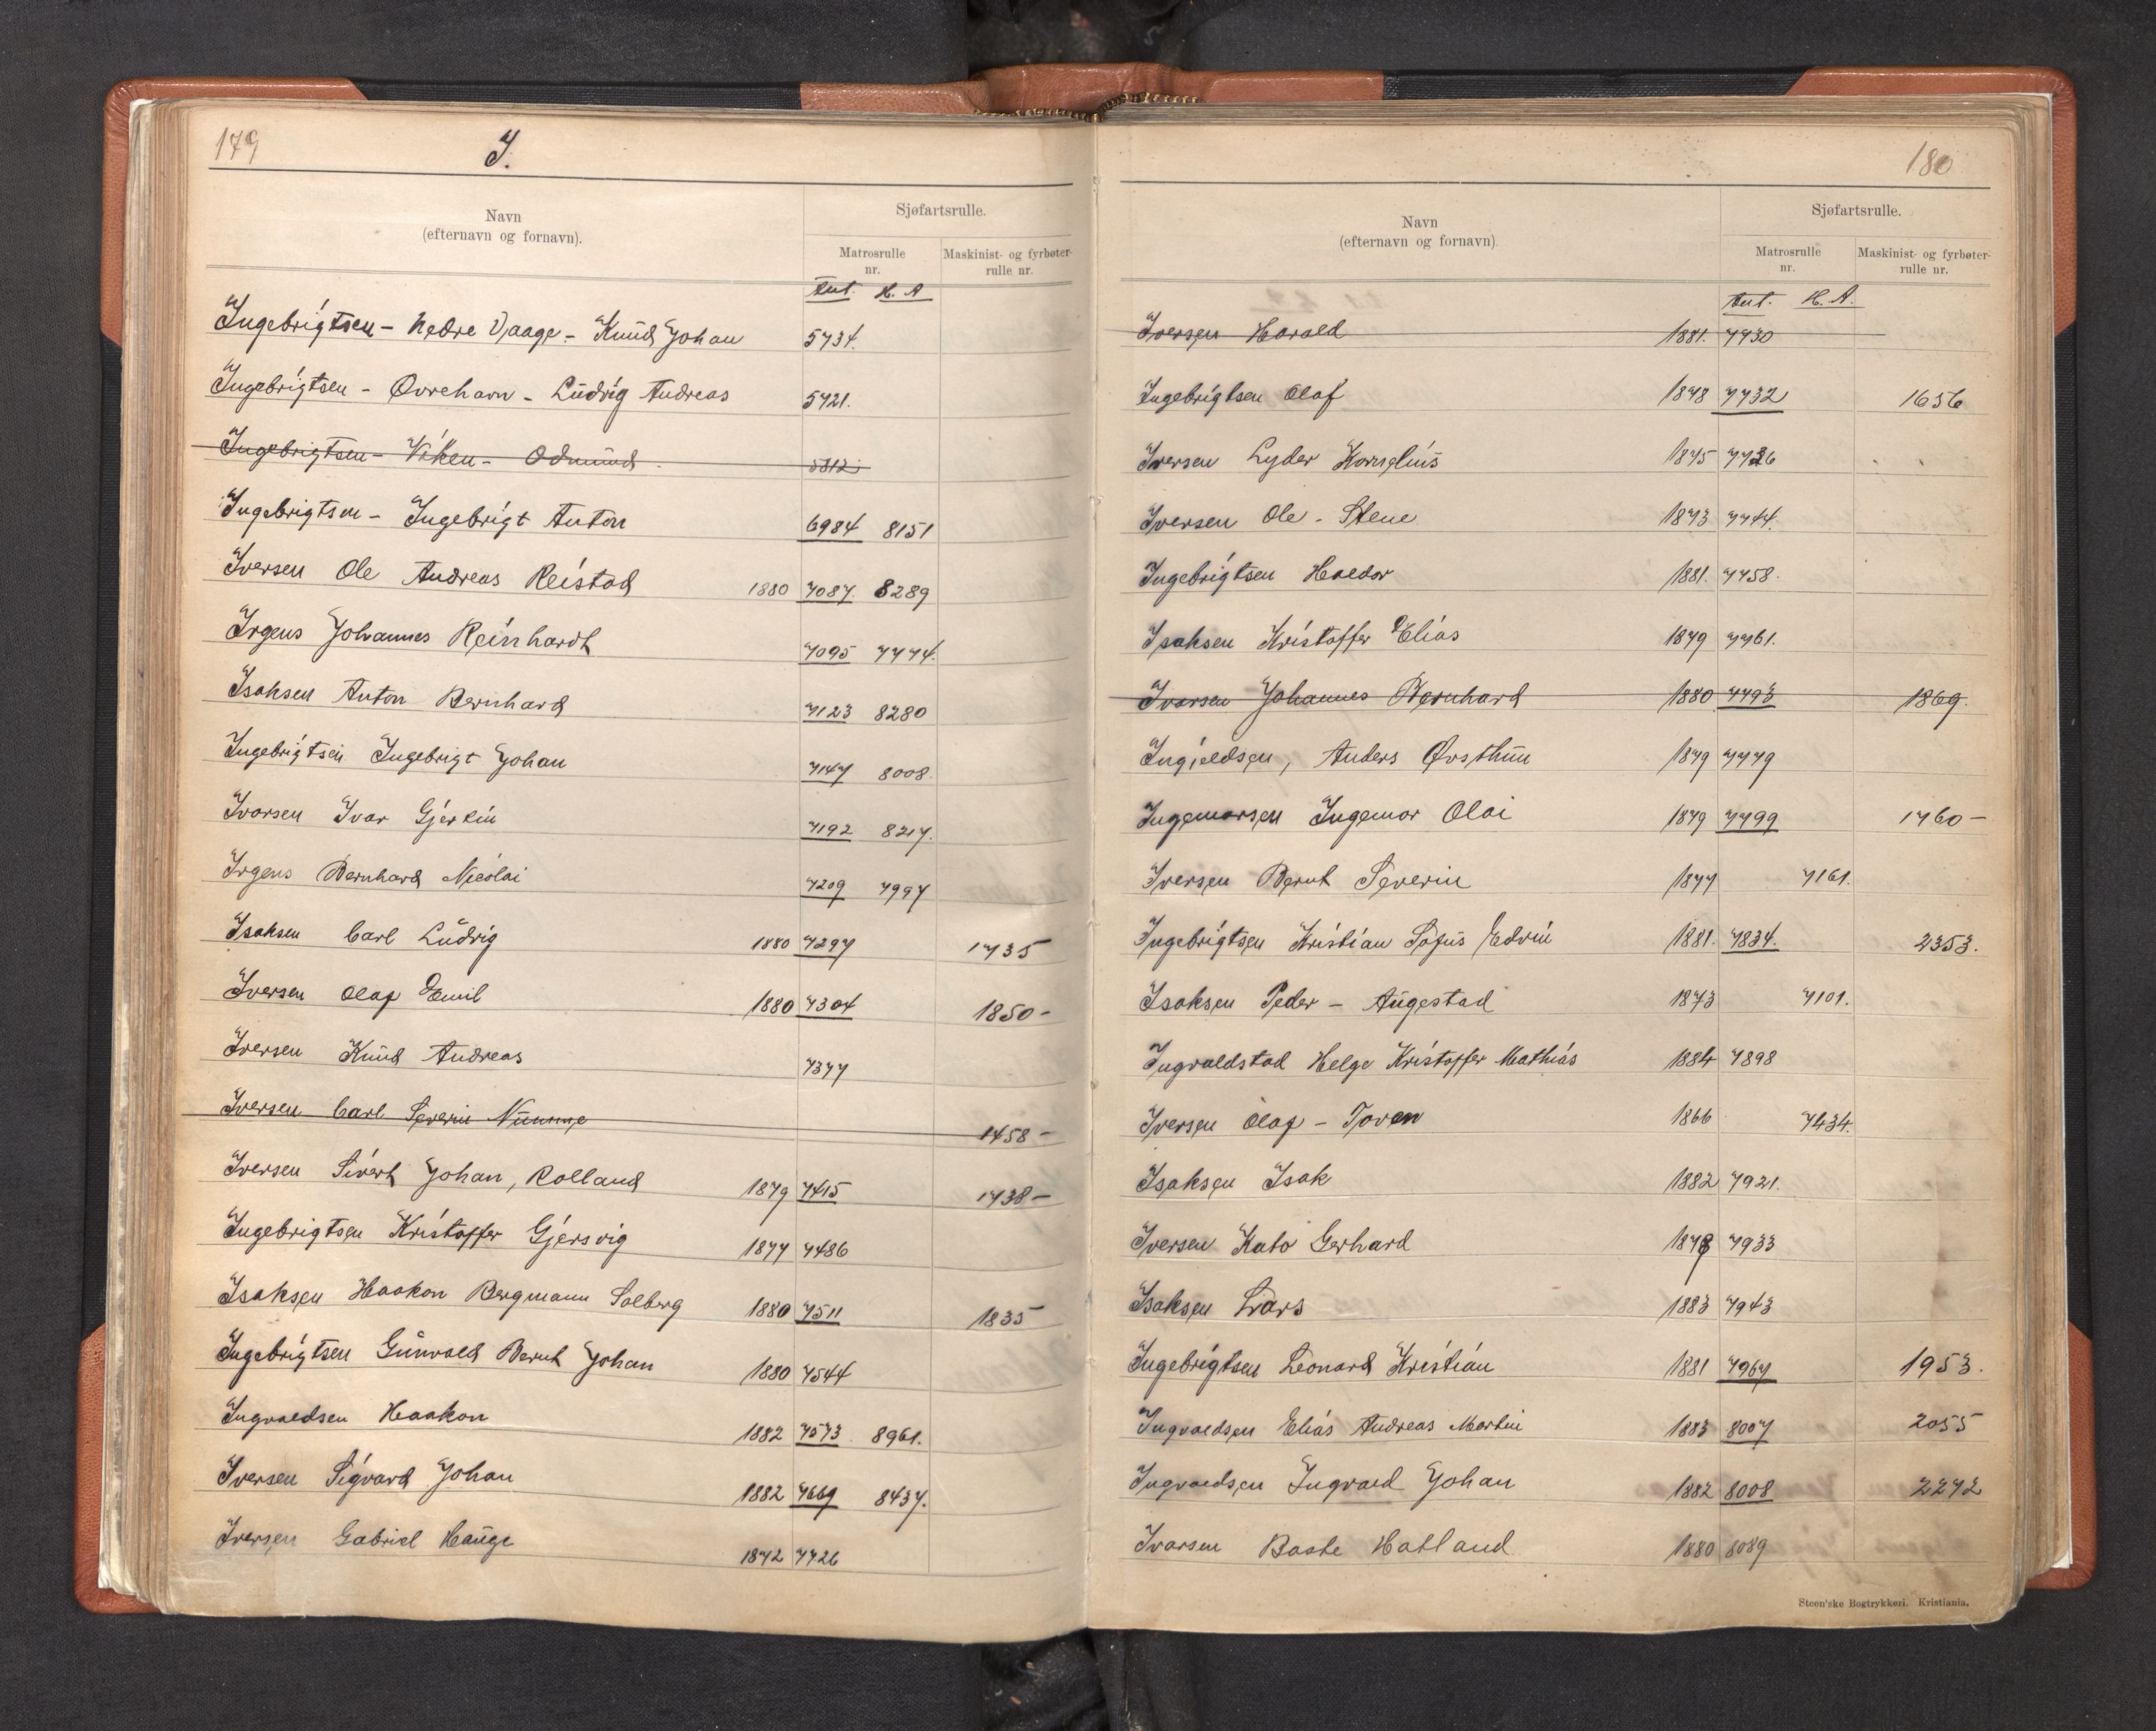 179
I.
Navn
(efternavn og fornavn).
Sjøfartsrulle.
Matrosrulle
nr.
Maskinist- og fyrbøter-
rulle nr.
Ant. H. A
Ingebrigtsen - Nedre Vaage - Knud Johan 5734.
Ingebrigtsen - Øvrehavn - Ludvig Andreas 5721.
Ingebrigtsen - Viken - Odmund 5812
Ingebrigtsen - Ingebrigt Anton 6984 8151
Iversen Ole Andreas Reistad 1880 7087. 8289
Irgens Johannes Reinhardt 7095 7774.
Isaksen Anton Bernhard 7123 8280
Ingebrigtsen Ingebrigt Johan 7147 8008.
Ivarsen Ivar Gjerlein 7192 8217.
Irgens Bernhard Nicolai 7209 7997
Isaksen Carl Ludvig 1880 7297 1735
Iversen Olaf Emil 1880 7304 1850-
Iversen Knud Andreas 7377
Iversen Carl Severin 1458-
Iversen Sivert Johan, Rolland 1879 7415 1738-
Ingebrigtsen Kristoffer Gjersvig 1877 7486
Isaksen Haakon Bergmann Solberg 1880 7511 1835
Ingebrigtsen Gunvald Bernt Johan 1880 7544
Ingvaldsen Haakon 1882 7573. 8961.
Iversen Sigvard Johan 1882 7669 8437.
Iversen Gabriel Hauge 1872 7726
180
Navn
(efternavn og fornavn).
Sjøfartsrulle.
Matrosrulle
nr.
Maskinist- og fyrbøter-
rulle nr.
Ant. H. A.
Iversen Harald 1881. 7730
Ingebrigtsen Olaf 1878 7732 1656
Iversen Lyder Kornelius 1875 7736
Iversen Ole - Stene 1873 7744.
Ingebrigtsen Haldor 1881. 7758.
Isaksen Kristoffer Elias 1879 7761.
Ivarsen Johannes Bernhard 1880 7793 1869.
Ingjeldsen, Anders Øvsthun 1879 7779
Ingemarsen Ingemar Olai 1879 7799 1760-
Iversen Bernt Severin 1877 7161.
Ingebrigtsen Kristian Sofus Edvin 1881. 7834. 2353.
Isaksen Peder - Augestad 1873 7101.
Ingvaldstad Helge Kristoffer Mathias 1884 7898
Iversen Olaf - Toven 1866 7434.
Isaksen Isak 1882 7921.
Iversen Kato Gerhard 1879 7933
Isaksen Lars 1883 7943
Ingebrigtsen Leonard Kristian 1881 7967 1953.
Ingvaldsen Elias Andreas Martin 1883 8007 2055
Ingvaldsen Ingvald Johan 1882 8008 2272
Ivarsen Baste Hatland 1880 8089
Steen'ske Bogtrykkeri. Kristiania.